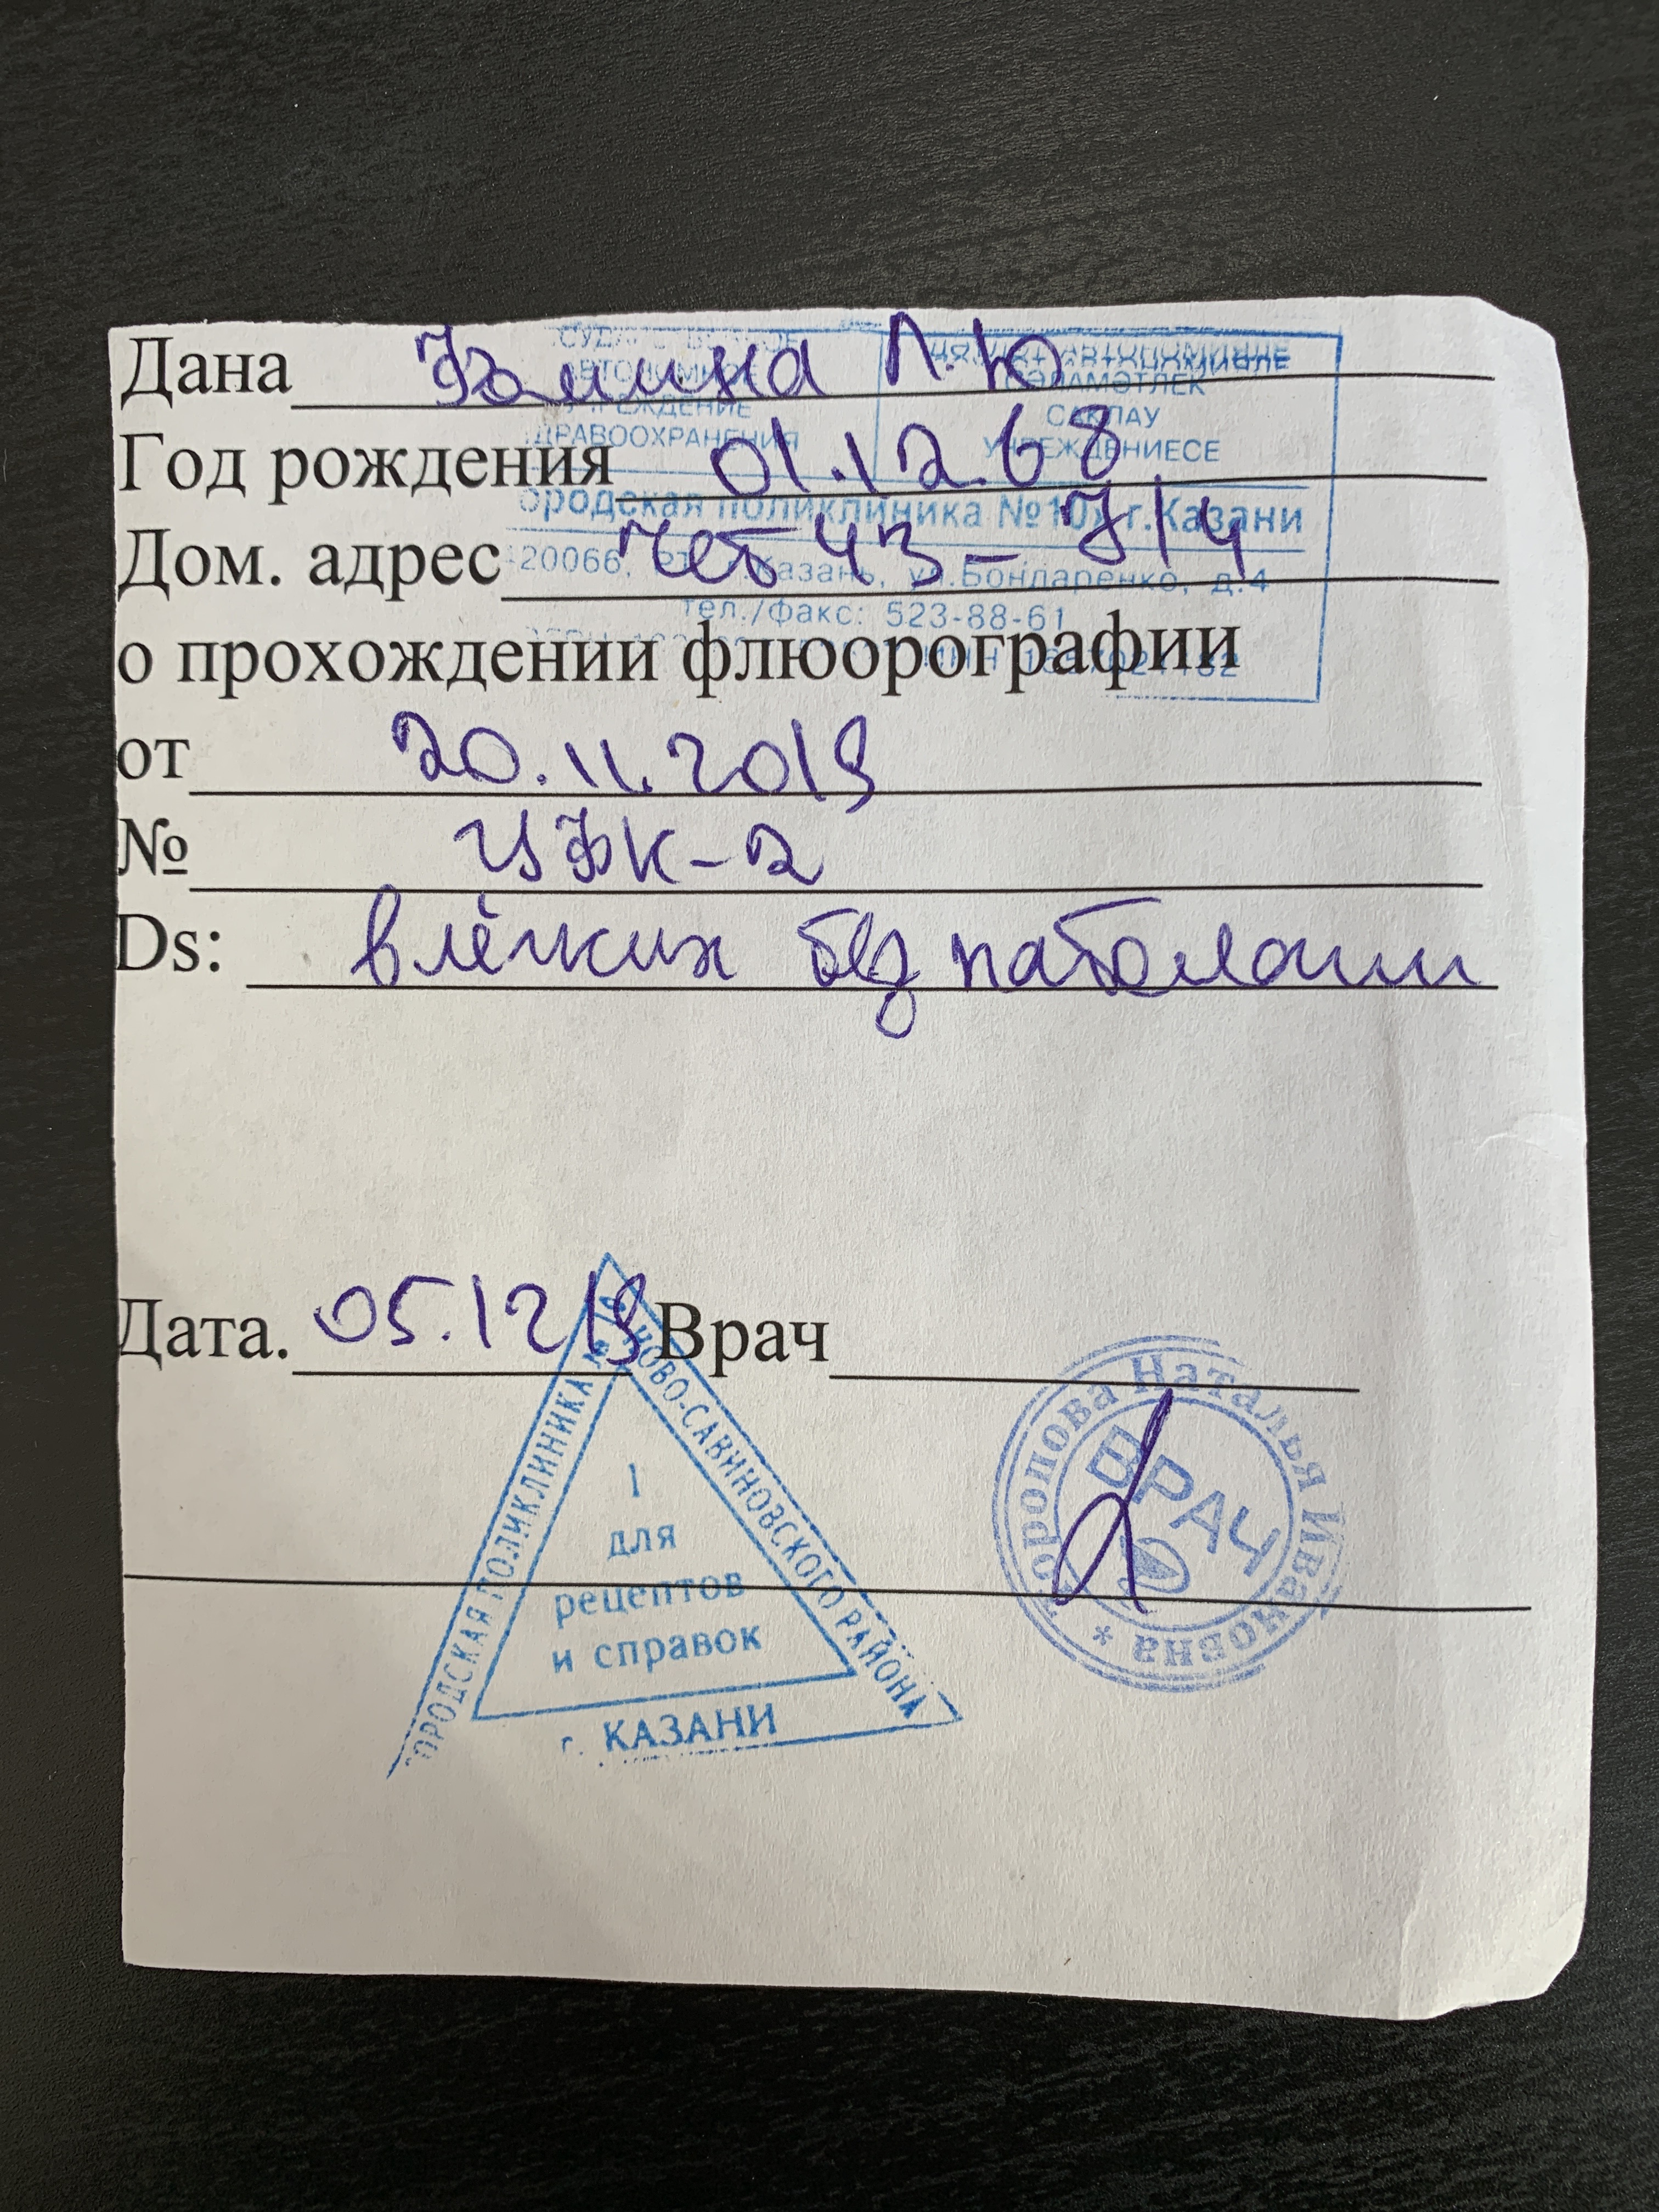 Дана Фомина Л.Ю
АВТОНОМНОЕ
УЧРЕЖДЕНИЕ
ЗДРАВООХРАНЕНИЯ
СӘЛАМӘТЛЕК
САКЛАУ
УЧРЕЖДЕНИЕСЕ
Год рождения 01.12.68
ородская поликлиника №10» г.Казани
Дом. адрес Чет 43-714
420066, РТ, г.Казань, ул.Бондаренко, д.4
тел./факс: 523-88-61
о прохождении флюорографии
от 20.11.2019
№ ЦФК-2
Ds: в лёгких без патологии
Дата. 05.12 19 Врач
ГОРОДСКАЯ ПОЛИКЛИНИКА №
НОВО-САВИНОВСКОГО РАЙОНА
1
для
рецептов
и справок
г. КАЗАНИ
Наталья Ивановна *
ВРАЧ